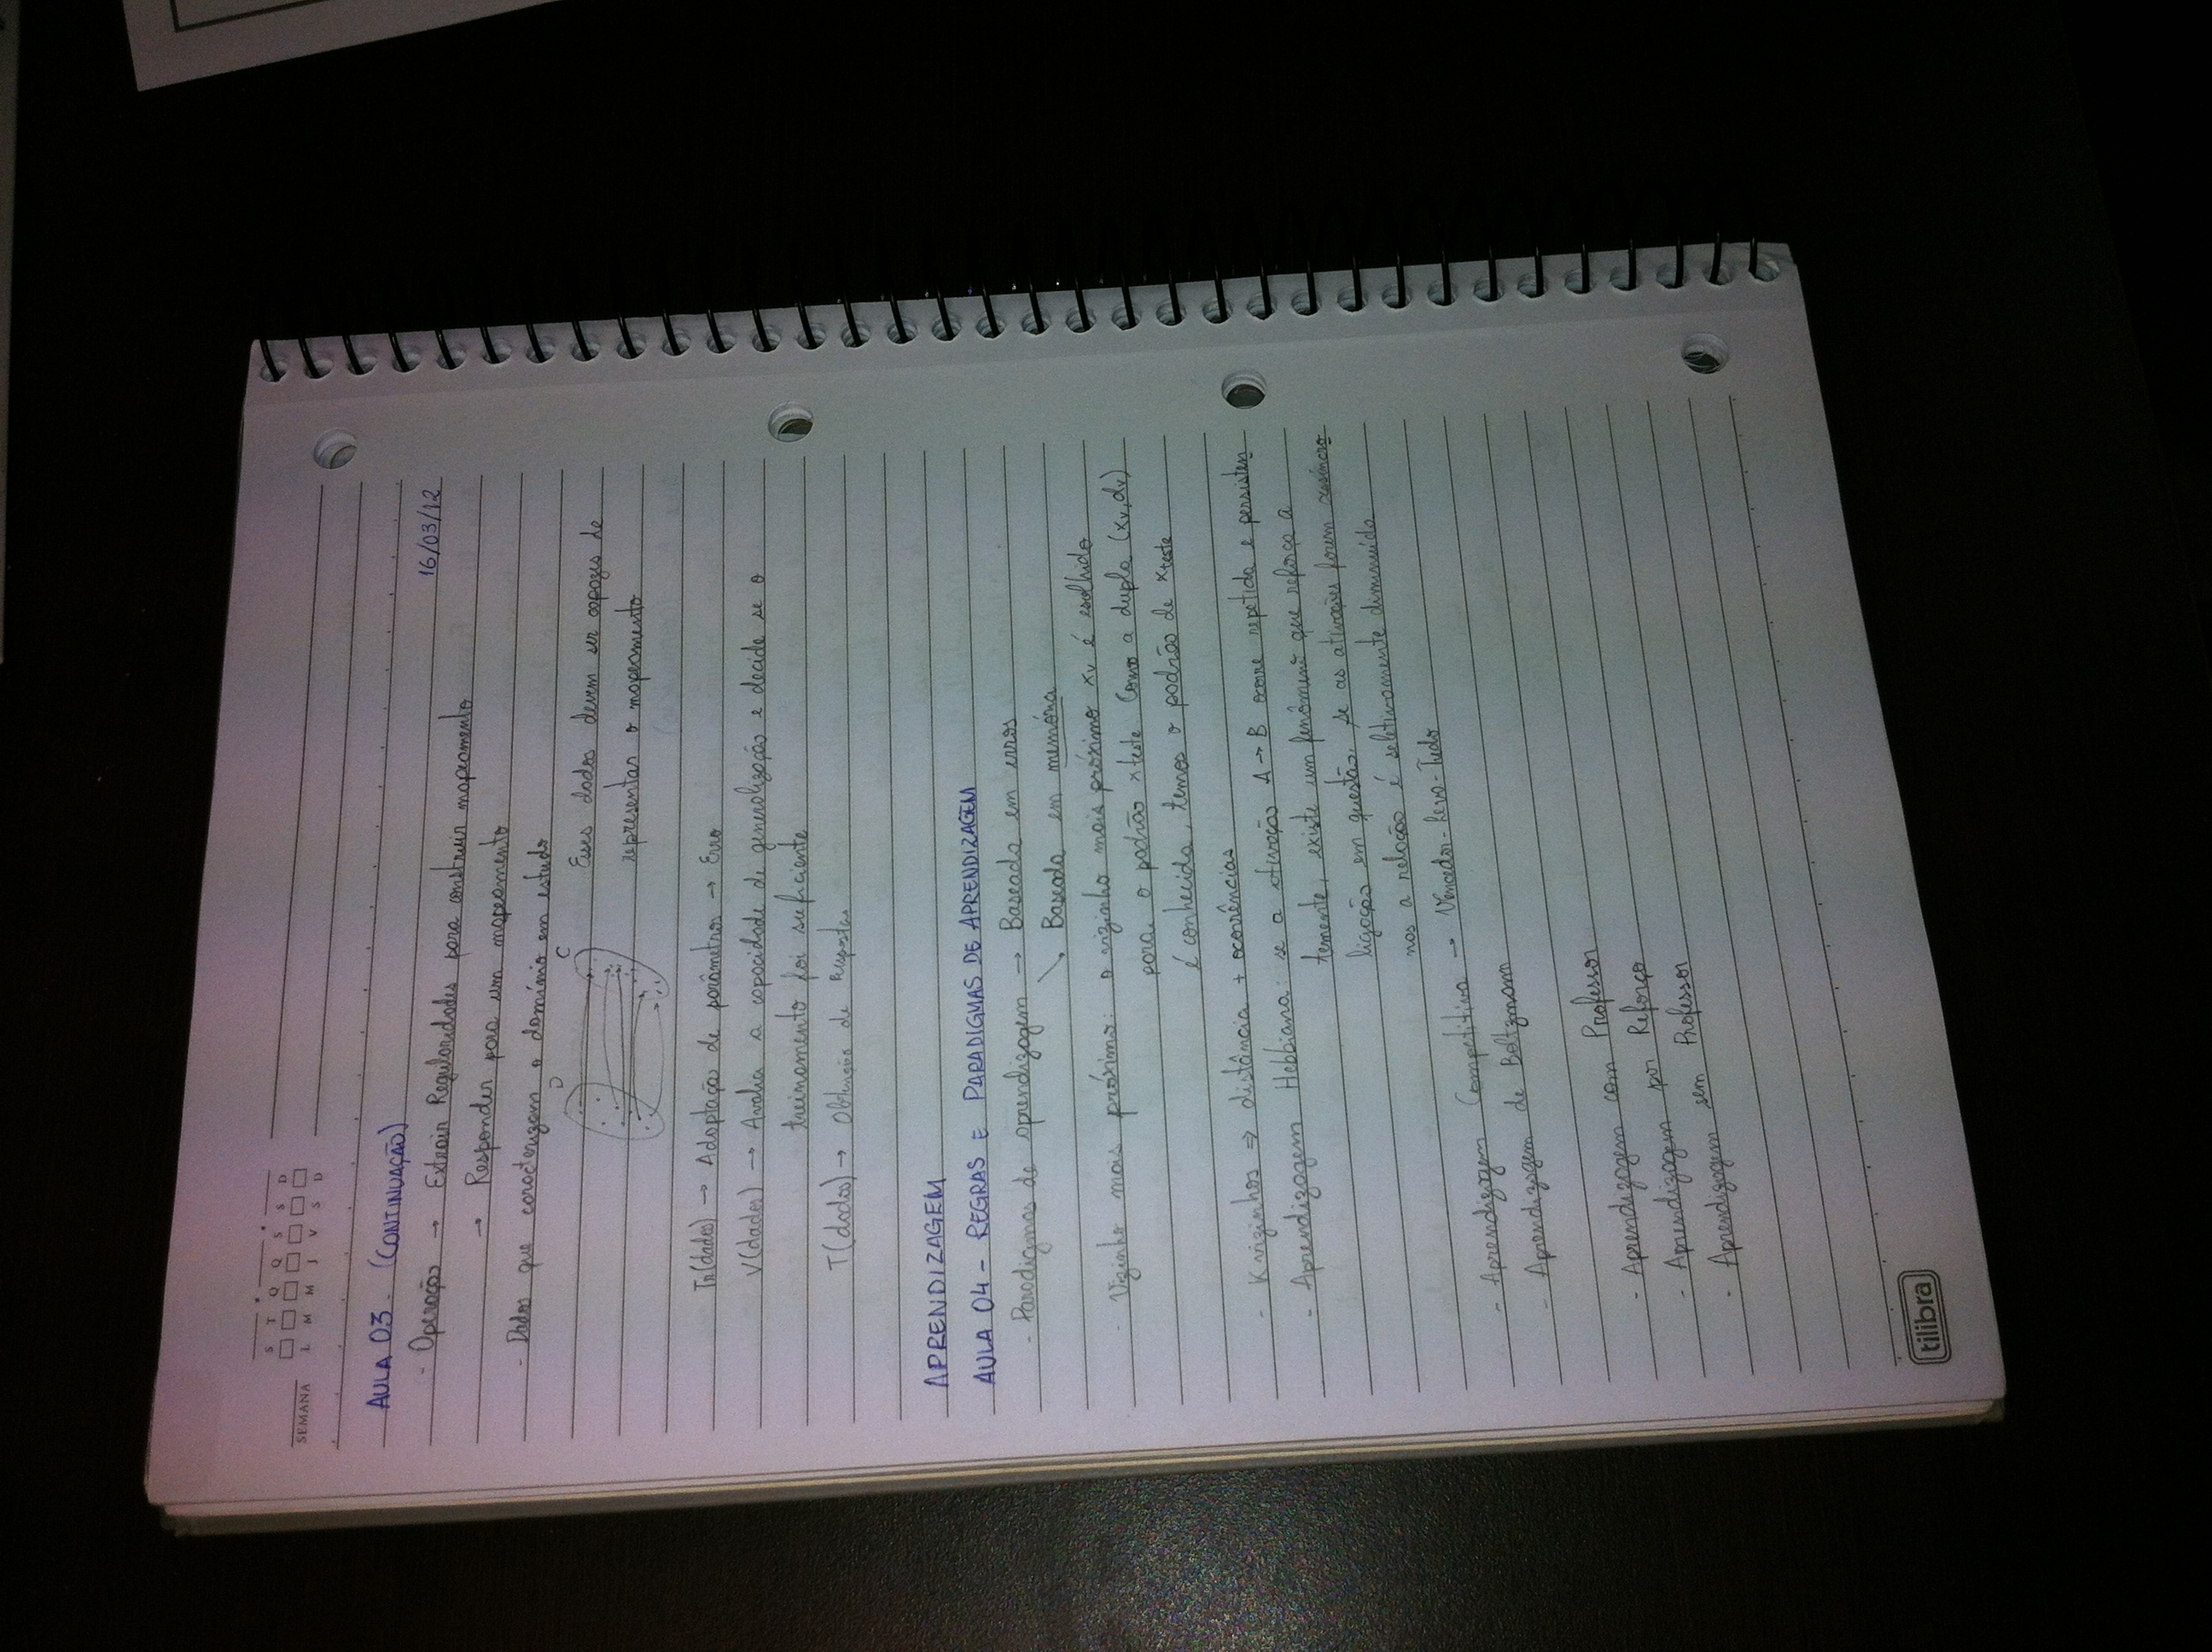 S T Q Q S S D
SEMANA
L M M J V S D
AULA 03 - (CONTINUAÇÃO)
16/03/12
- Operação → Extrair Regularidades para construir mapeamento
→ Responder para um mapeamento
- Dados que caracterizam o domínio em estudo
D C
Esses dados devem ser capazes de
representar o mapeamento
Tr(dados) → Adaptação de parâmetros → Erro
V(dados) → Avalia a capacidade de generalização e decide se o
treinamento foi suficiente
T(dados) → Obtenção de Respostas
APRENDIZAGEM
AULA 04 - REGRAS E PARADIGMAS DE APRENDIZAGEM
- Paradigmas de aprendizagem → Baseada em erros
↘ Baseada em memória
- Vizinho mais próximo: o vizinho mais próximo xv é escolhido
para o padrão xteste. Como a dupla (xv, dv)
é conhecida, temos o padrão de xteste
- K vizinhos ⇒ distância + ocorrências
- Aprendizagem Hebbiana: se a ativação A → B ocorre repetida e persisten
temente, existe um fenômeno que reforça a
ligação em questão. Se as ativações forem assíncro
nas a relação é seletivamente diminuída
- Aprendizagem Competitiva → Vencedor-Leva-Tudo
- Aprendizagem de Boltzmann
- Aprendizagem com Professor
- Aprendizagem por Reforço
- Aprendizagem sem Professor
tilibra